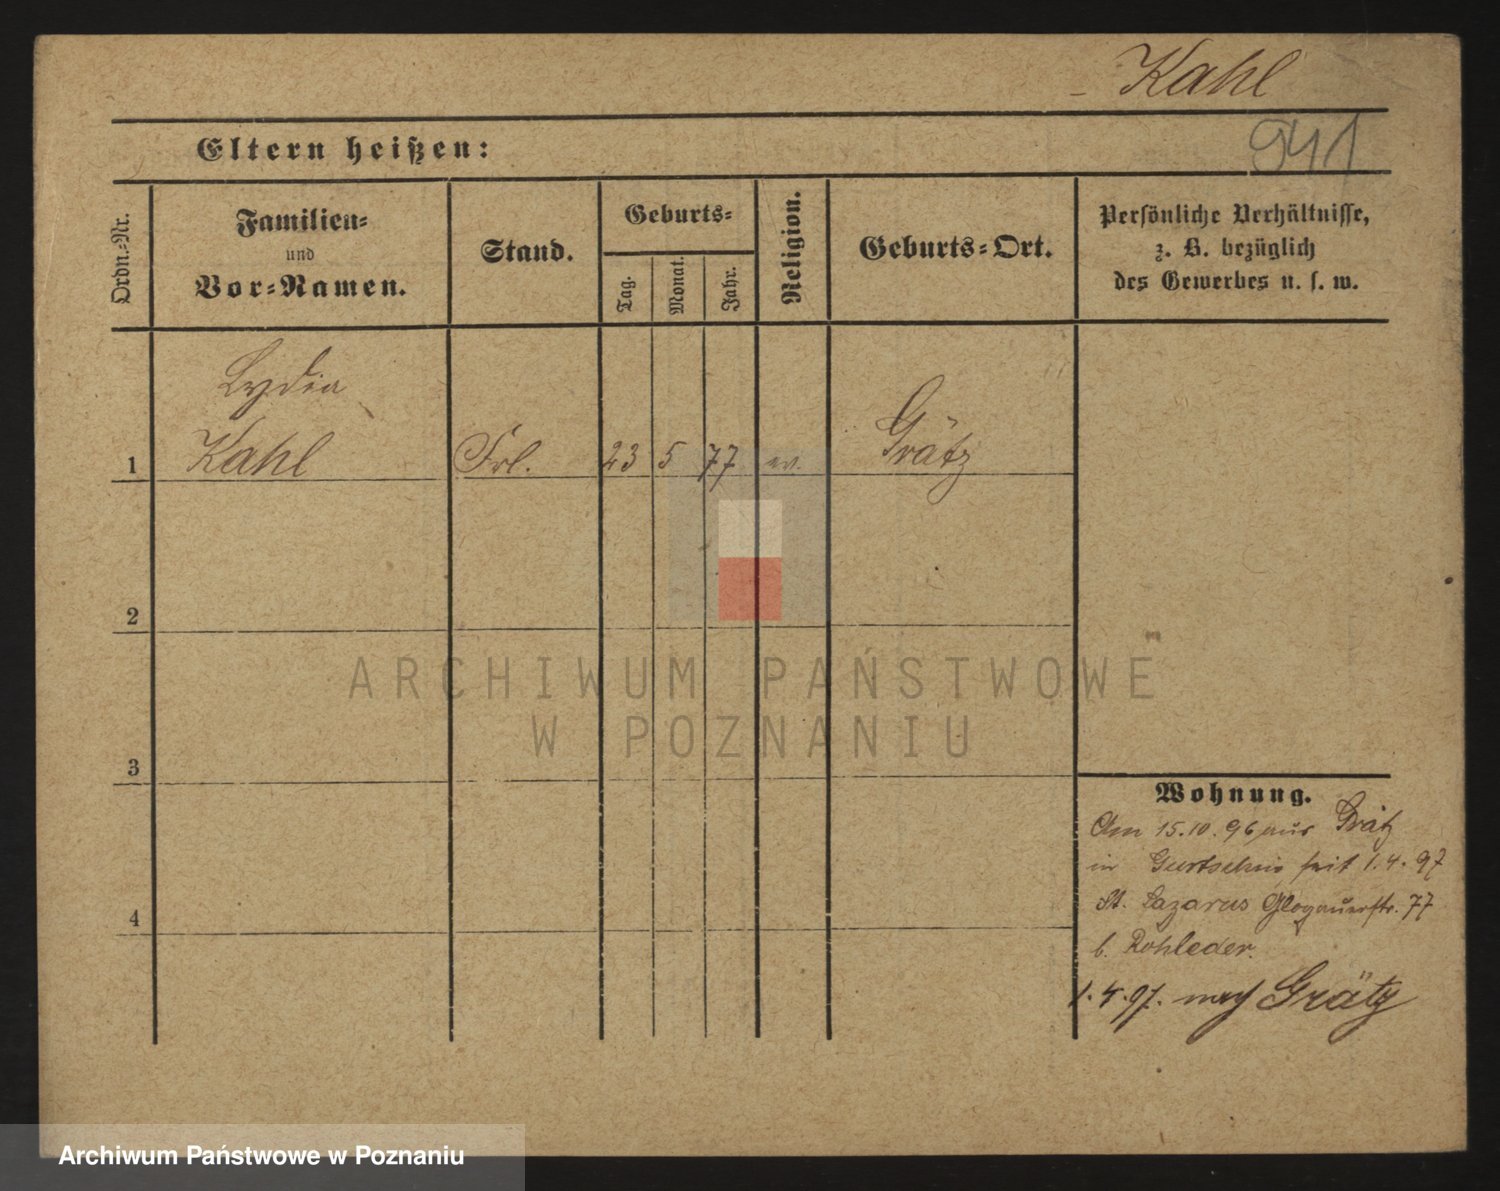 Kahl
Eltern heißen:
941
Ordn.-Nr.
Familien-
und
Vor-Namen.
Stand.
Geburts-
Tag.
Monat.
Jahr.
Religion.
Geburts-Ort.
Persönliche Verhältnisse,
z. B. bezüglich
des Gewerbes u. s. w.
Lydia
1 Kahl Frl. 23 5 77 ev. Grätz
2
ARCHIWUM PAŃSTWOWE
W POZNANIU
3
Wohnung.
Am 15.10.96 aus Grätz
in Gurtschin seit 1.4.97
St. Lazarus Glogauerstr. 77
4
b. Rohleder.
1.4.97. nach Grätz
Archiwum Państwowe w Poznaniu